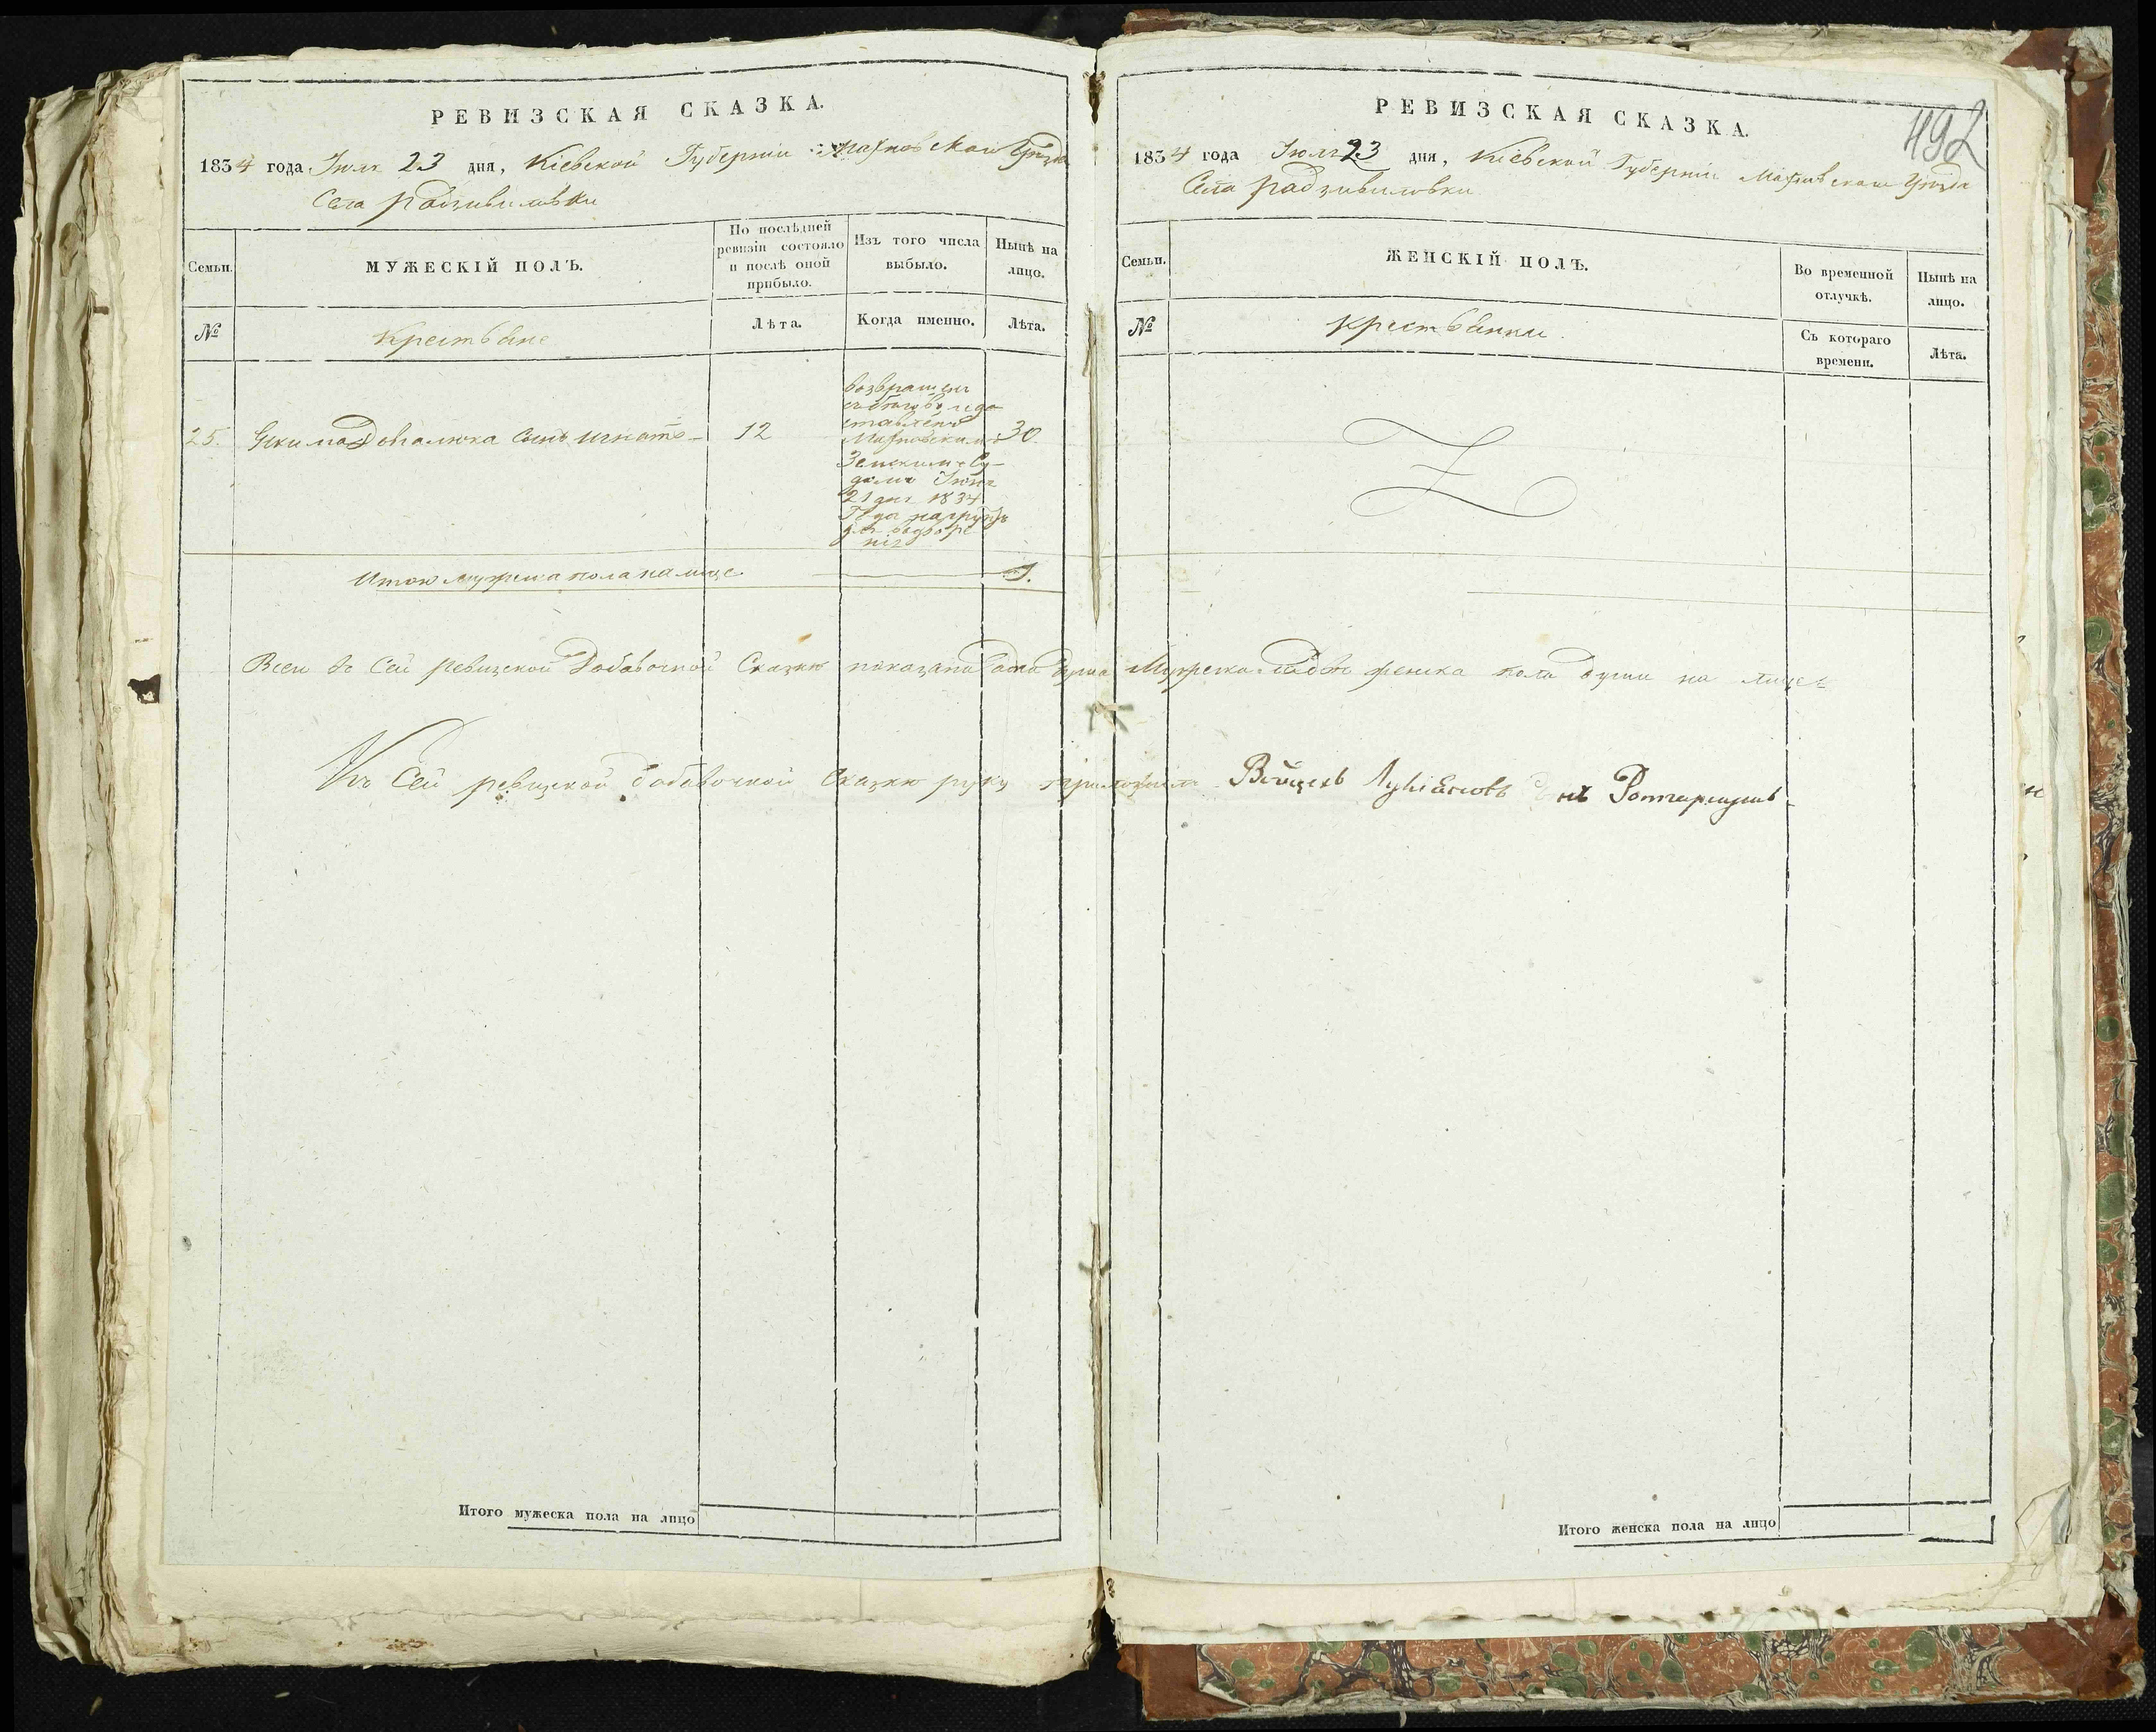 РЕВИЗСКАЯ СКАЗКА.
1834 года Июля 23 дня, Кіевской Губерніи Махновскаго Уезда
Села Радзивиловки
Семьи.
МУЖЕСКІЙ ПОЛЪ.
По послѣдней ревизіи состояло и послѣ оной прибыло.
Изъ того числа выбыло.
Нынѣ на лицо.
№
Крестьяне
Лѣта.
Когда именно.
Лѣта.
25. Якима Довгалюка сынъ Игнатъ 12
возвращен
ставленъ
Махновскимъ 30
Земскимъ Су-
домъ Іюня
21 дня 1834
Года
Итого мужеска пола на лице 1.
Всего въ Сей ревизской Добавочной Сказкѣ показана одна душа
Къ Сей ревизской добавочной Сказки руку приложилъ
Итого мужеска пола на лицо
РЕВИЗСКАЯ СКАЗКА.
492
1834 года Июля 23 дня, Кіевской Губерніи Махновскаго Уезда
Села Радзивиловки
Семьи.
ЖЕНСКІЙ ПОЛЪ.
Во временной отлучкѣ.
Нынѣ на лицо.
№
Крестьянки
Съ котораго времени.
Лѣта.
Мужеска женска пола души на лице
Войцехъ
Итого женска пола на лицо